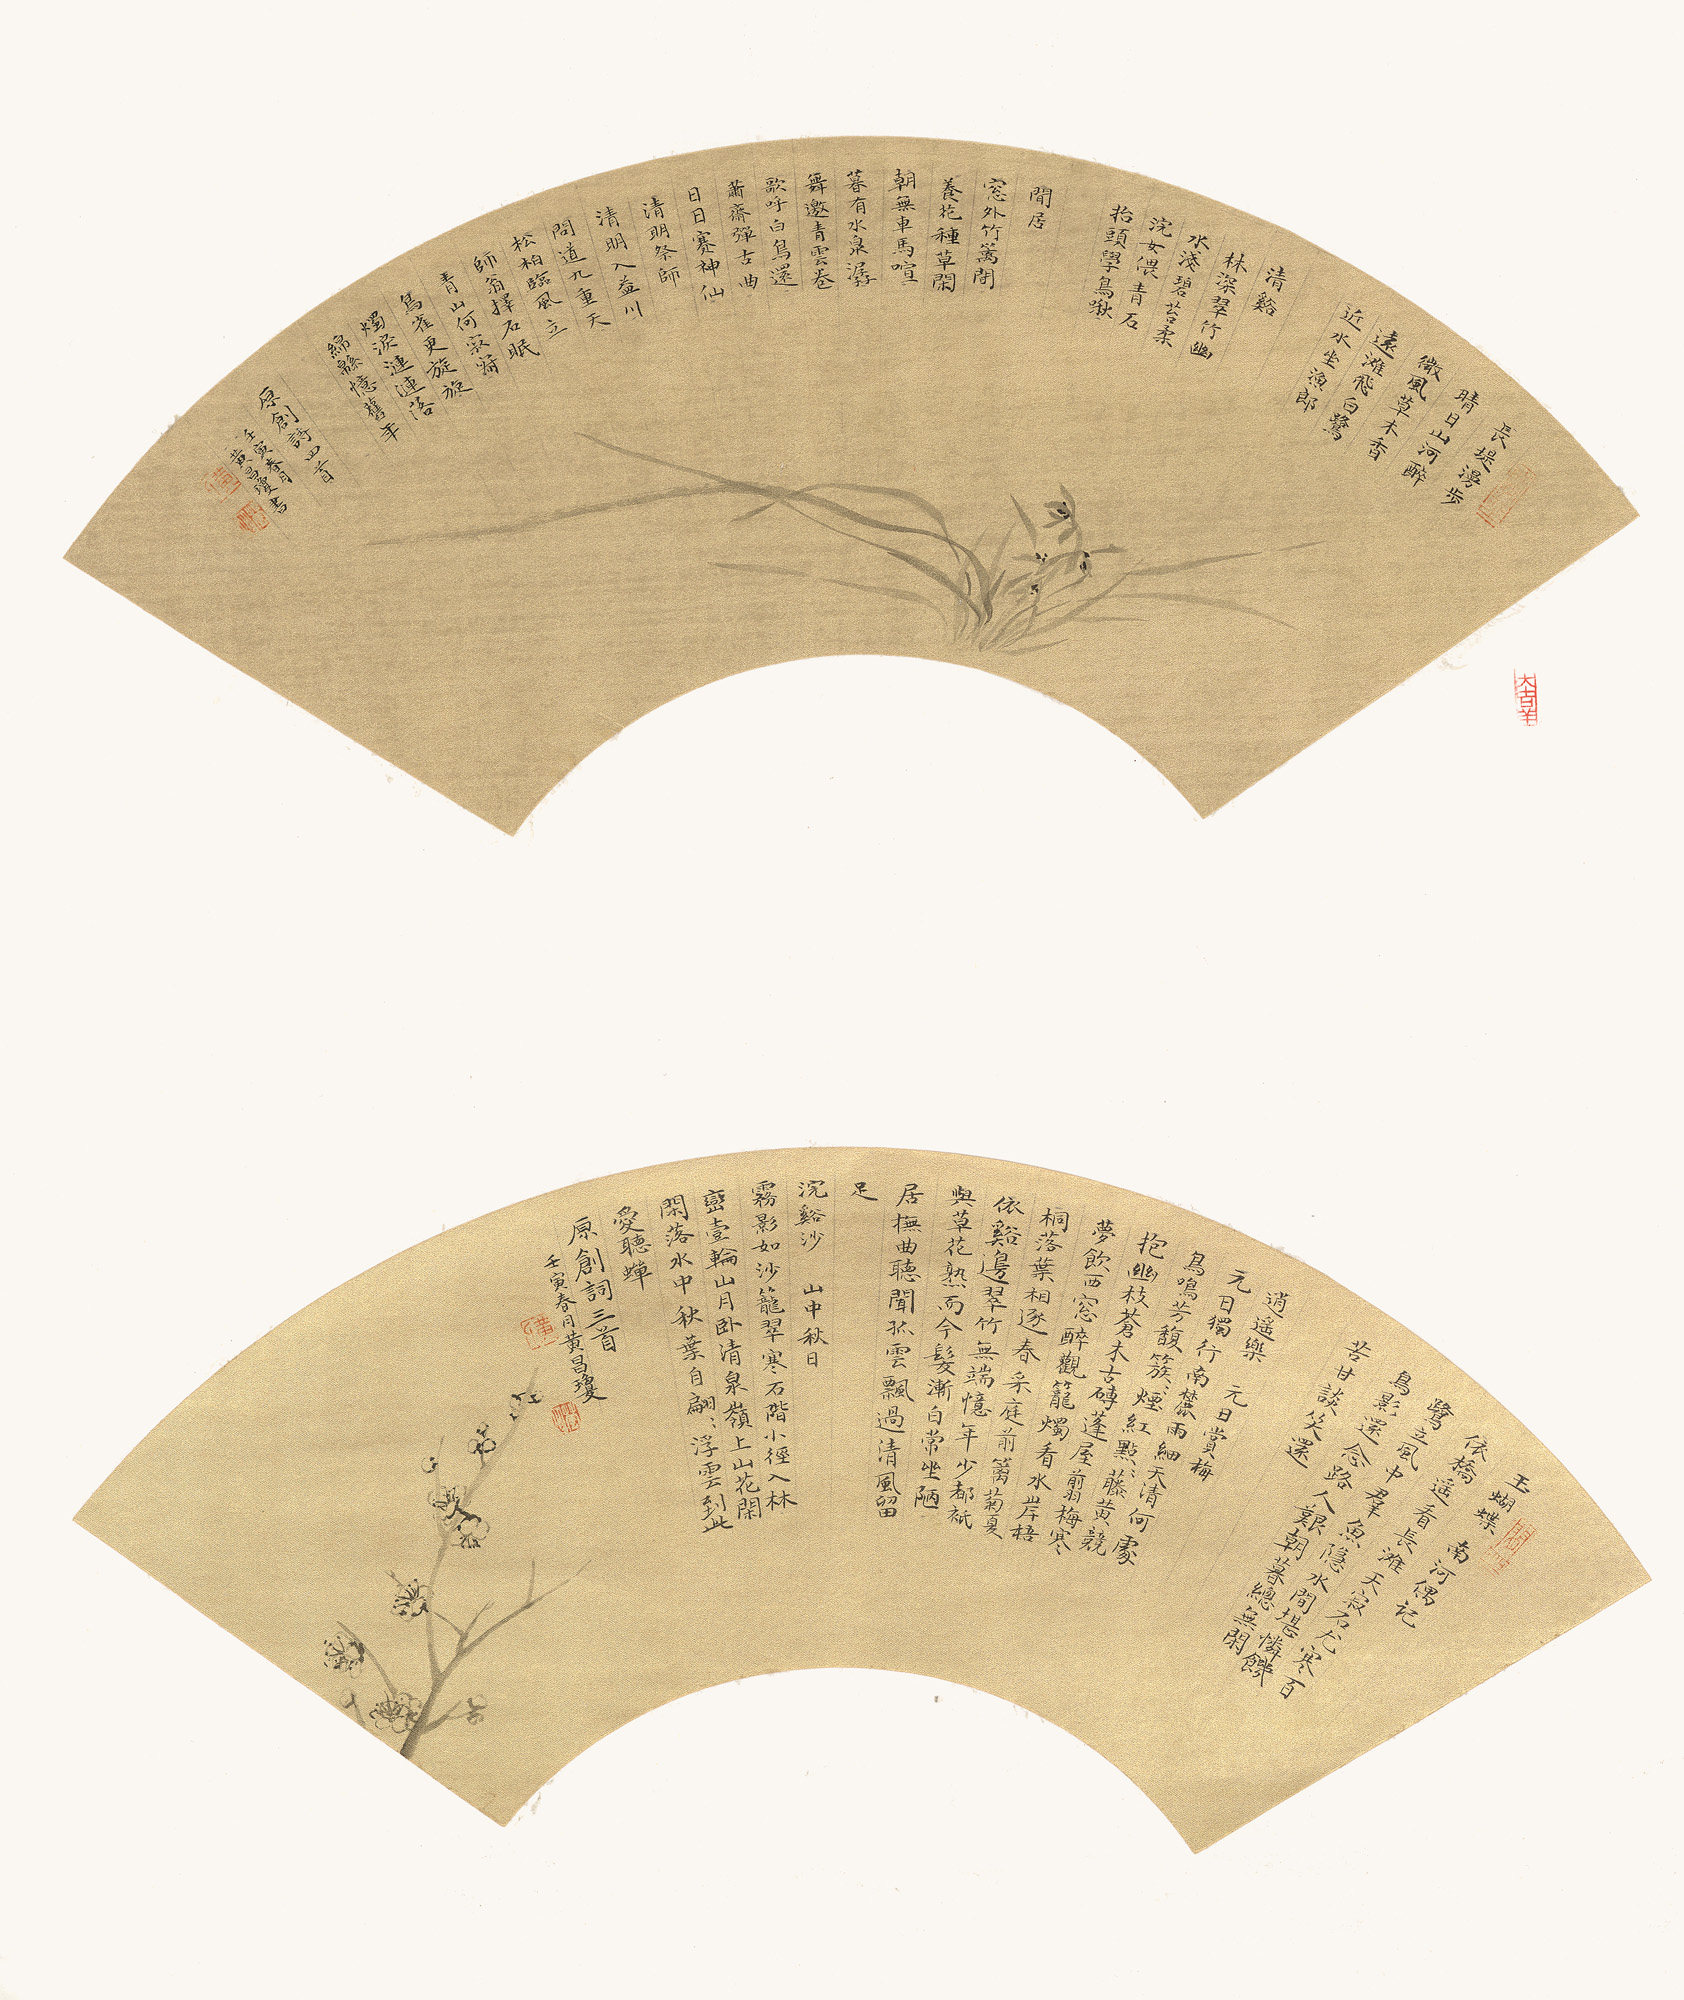 長堤漫步
晴日山河醉
微風草木香
遠灘飛白鷺
近水坐漁郎
清谿
林深翠竹幽
水淺碧苔柔
浣女偎青石
抬頭學鳥啾
閒居
窓外竹篱閒
養花種草閑
朝無車馬喧
暮有水泉潺
舞邀青雲卷
歌呼白鳥還
蕭齋彈古曲
日日賽神仙
清明祭師
清明入益川
問道九重天
松柏臨風立
師翁擇石眠
青山何寂寂
鳥雀更旋旋
燭淚漣漣落
綿緜憶舊年
原創詩四首
壬寅春月
黄昌瓊書
大吉羊
玉蝴蝶 南河偶記
依橋遥看長灘天寂石尤寒百
鷺立風中群魚隱水間堪憐饑
鳥影還念路人艱朝暮總無閑
苦甘談笑還
逍遥樂 元日賞梅
元日獨行南麓雨細天清何處
鳥鳴芳馥簇〻煙紅點〻藤黄競
抱幽枝蒼木古磚蓬屋前翦梅寒
夢飲西窓醉觀籠燭看水岸梧
桐落葉相逐春采庭前篱菊夏
依谿邊翠竹無端憶年少都祇
與草花熟而今髮漸白常坐陋
居撫曲聽聞孤雲飄過清風留
足
浣谿沙 山中秋日
霧影如沙籠翠寒石階小徑入林
巒壹輪山月卧清泉嶺上山花閑
閑落水中秋葉自翩〻浮雲到此
愛聽蟬
原創詞三首
壬寅春月黄昌瓊